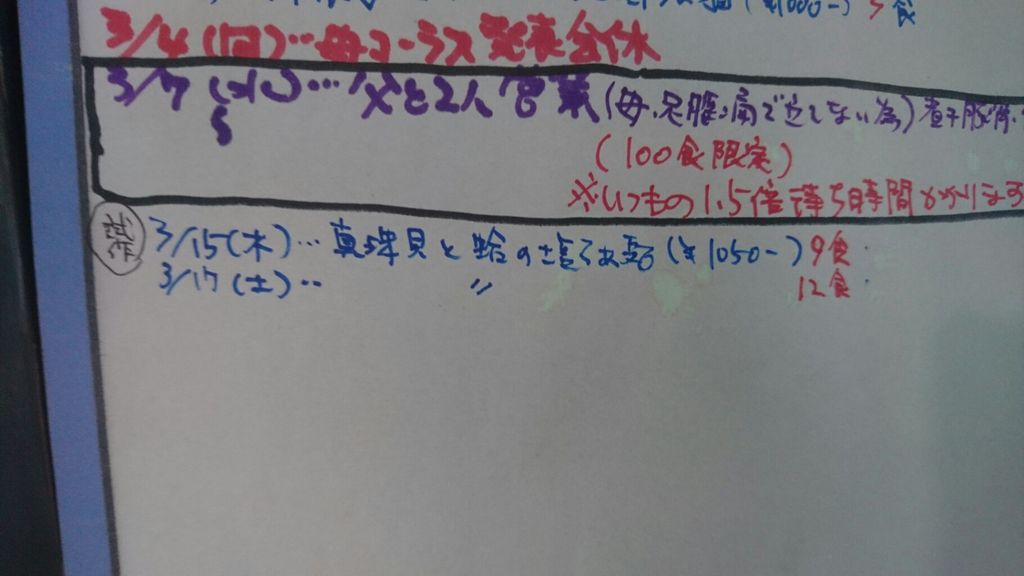 (¥1000-) 5食
3/4(日)…母コーラス発表会休
3/7(水)…父と2人営業(母、足腫れ痛で立てない為)煮干豚骨
(100食限定)
※いつもの1.5倍待ち時間かかります
試作 3/15(木)…真珠貝と蛤の塩らぁ麺(¥1050-) 9食
3/17(土)‥ 〃 12食